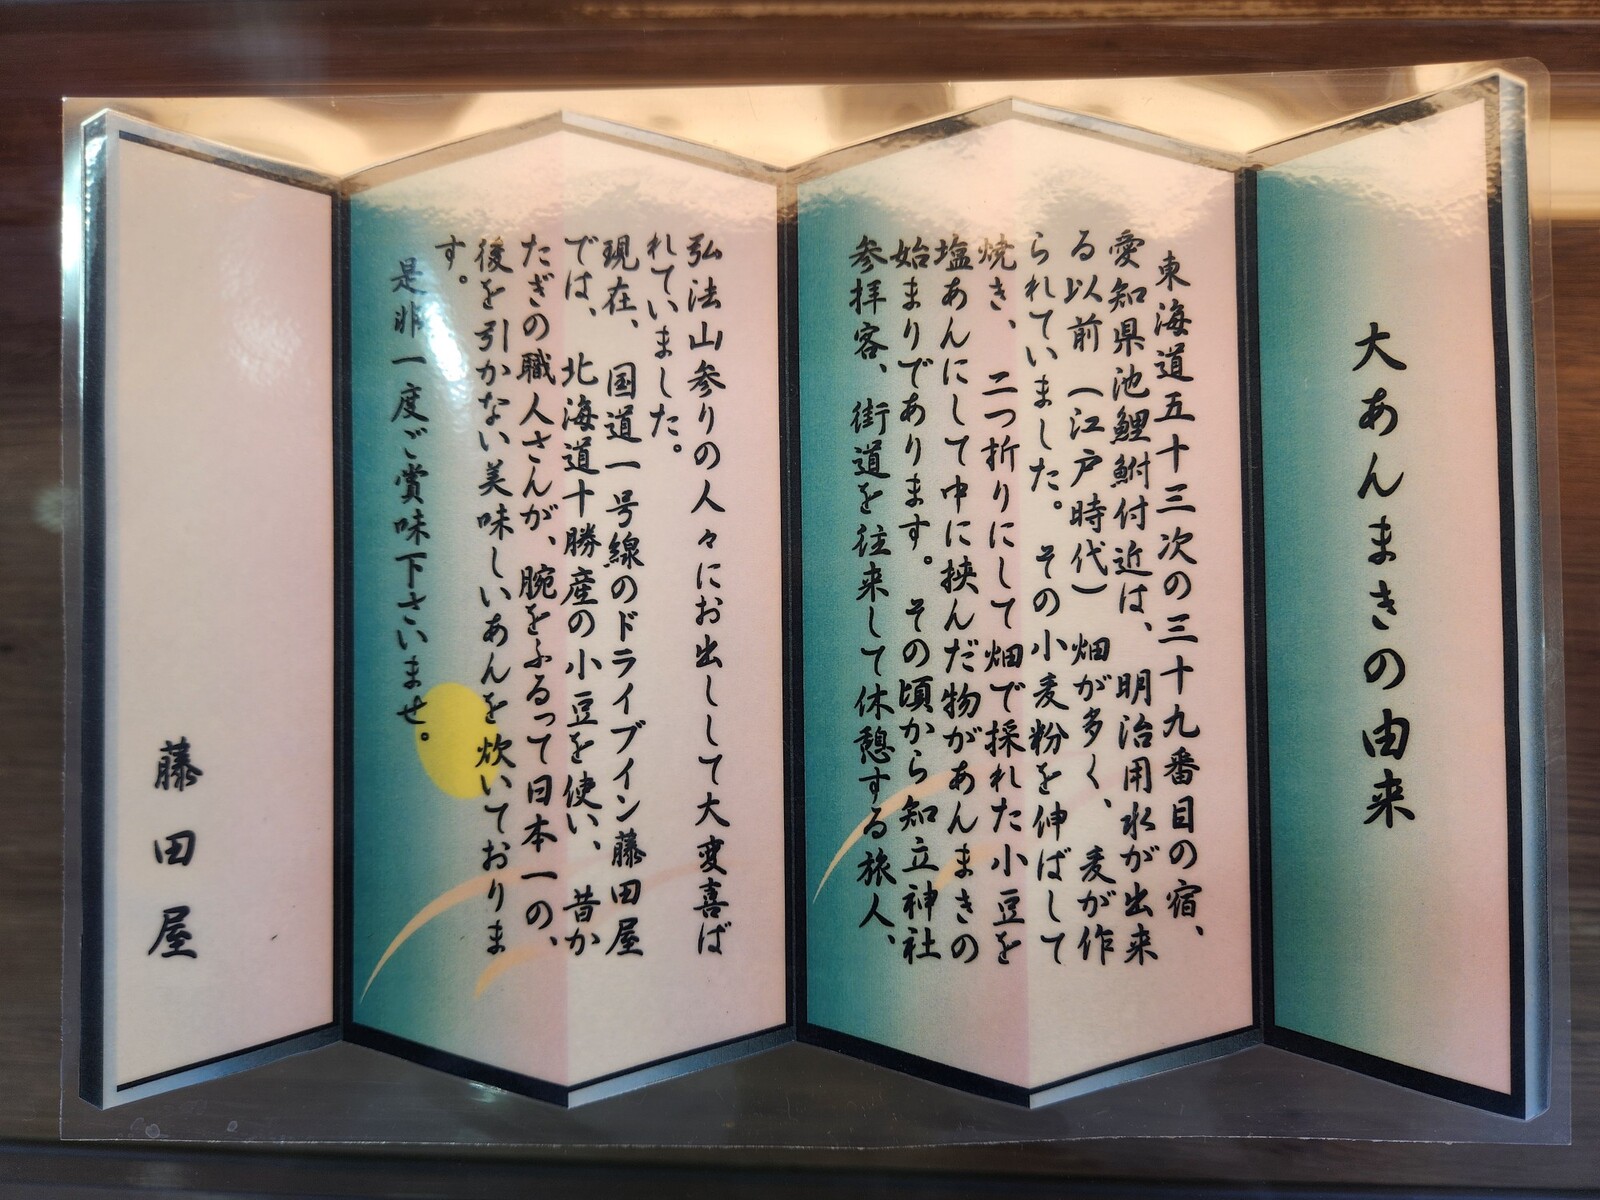 大あんまきの由来
東海道五十三次の三十九番目の宿、
愛知県池鯉鮒付近は、明治用水が出来
る以前(江戸時代)畑が多く、麦が作
られていました。その小麦粉を伸ばして
焼き、二つ折りにして畑で採れた小豆を
塩あんにして中に挟んだ物があんまきの
始まりであります。その頃から知立神社
参拝客、街道を往来して休憩する旅人、
弘法山参りの人々にお出しして大変喜ば
れていました。
現在、国道一号線のドライブイン藤田屋
では、北海道十勝産の小豆を使い、昔か
たぎの職人さんが、腕をふるって日本一の、
後を引かない美味しいあんを炊いておりま
す。
是非一度ご賞味下さいませ。
藤田屋